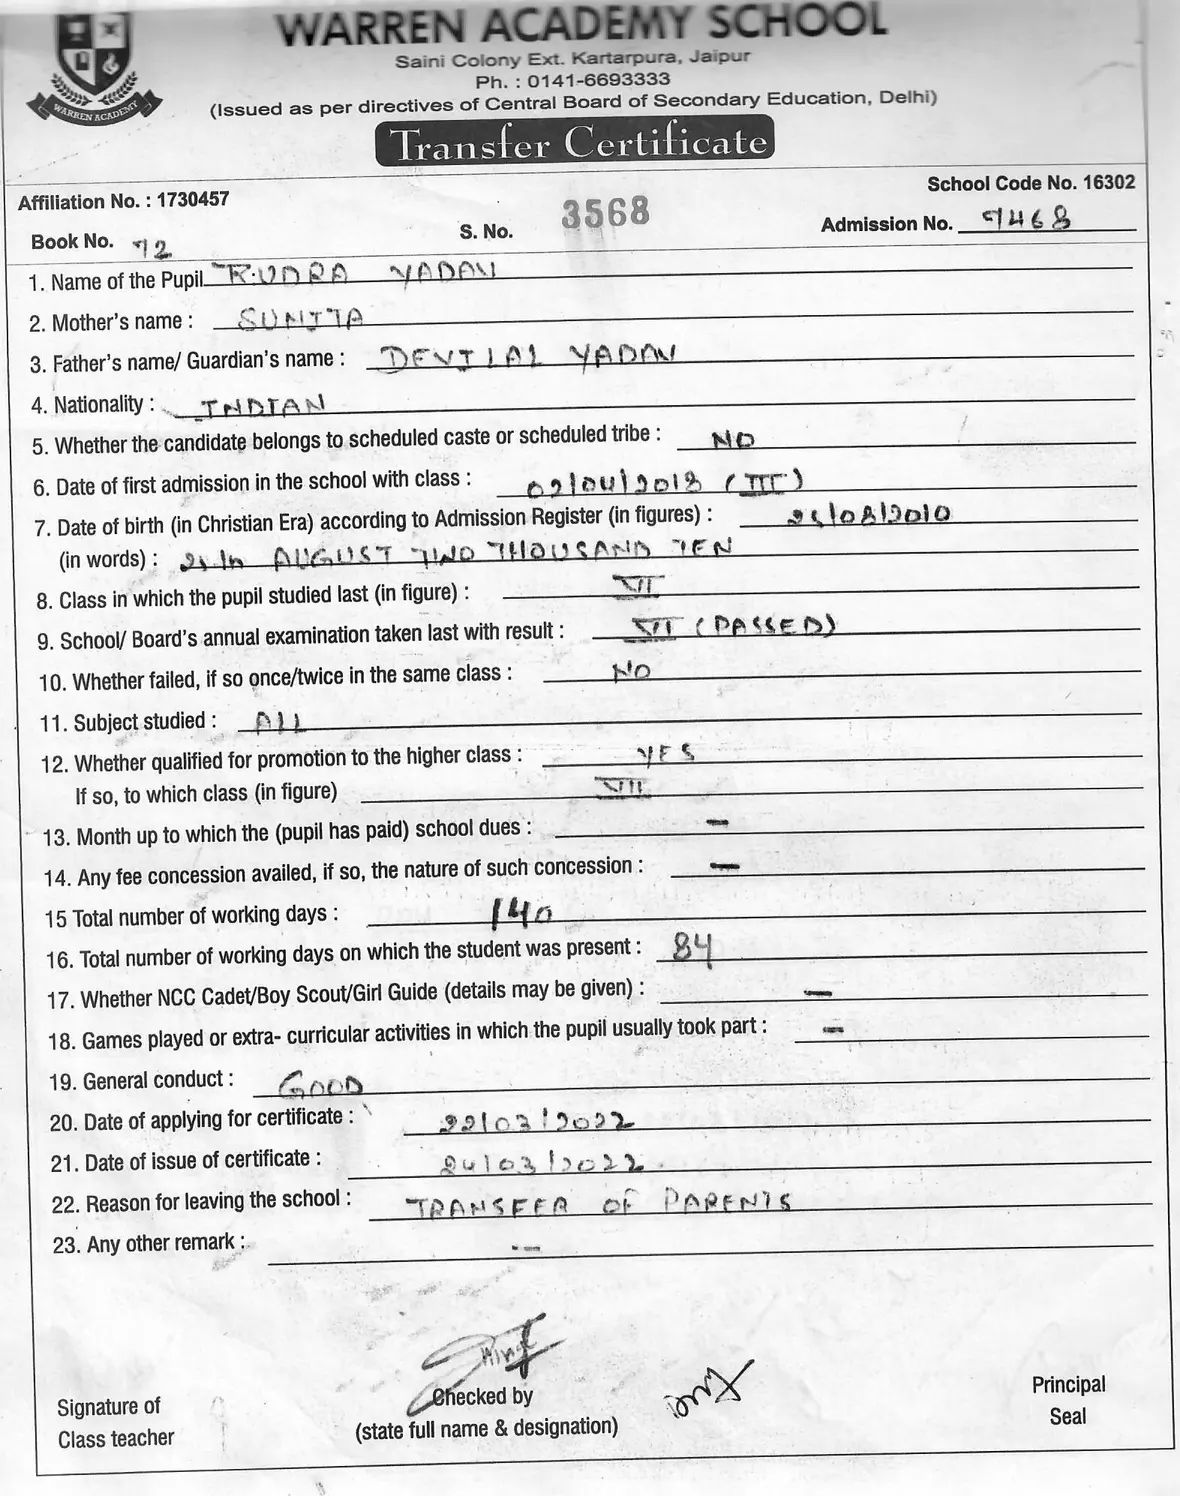 WARREN ACADEMY SCHOOL
Saini Colony Ext. Kartarpura, Jaipur
Ph. : 0141-6693333
(Issued as per directives of Central Board of Secondary Education, Delhi)
WARREN ACADEMY
Transfer Certificate
Affiliation No. : 1730457
School Code No. 16302
Book No. 72
S. No. 3568
Admission No. 9468
1. Name of the Pupil RUDRA YADAV
2. Mother's name : SUNITA
3. Father's name/ Guardian's name : DEVILAL YADAV
4. Nationality : INDIAN
5. Whether the candidate belongs to scheduled caste or scheduled tribe : NO
6. Date of first admission in the school with class : 02/04/2018 (III)
7. Date of birth (in Christian Era) according to Admission Register (in figures) :
(in words) : AUGUST TWO THOUSAND TEN
8. Class in which the pupil studied last (in figure) : VI
9. School/ Board's annual examination taken last with result : VI (PASSED)
10. Whether failed, if so once/twice in the same class : NO
11. Subject studied : ALL
12. Whether qualified for promotion to the higher class : YES
If so, to which class (in figure) VII
13. Month up to which the (pupil has paid) school dues : -
14. Any fee concession availed, if so, the nature of such concession : -
15 Total number of working days : 140
16. Total number of working days on which the student was present : 84
17. Whether NCC Cadet/Boy Scout/Girl Guide (details may be given) : -
18. Games played or extra- curricular activities in which the pupil usually took part : -
19. General conduct : GOOD
20. Date of applying for certificate : 22/03/2022
21. Date of issue of certificate : 24/03/2022
22. Reason for leaving the school : TRANSFER OF PARENTS
23. Any other remark : -
Signature of
Class teacher
Checked by
(state full name & designation)
Principal
Seal